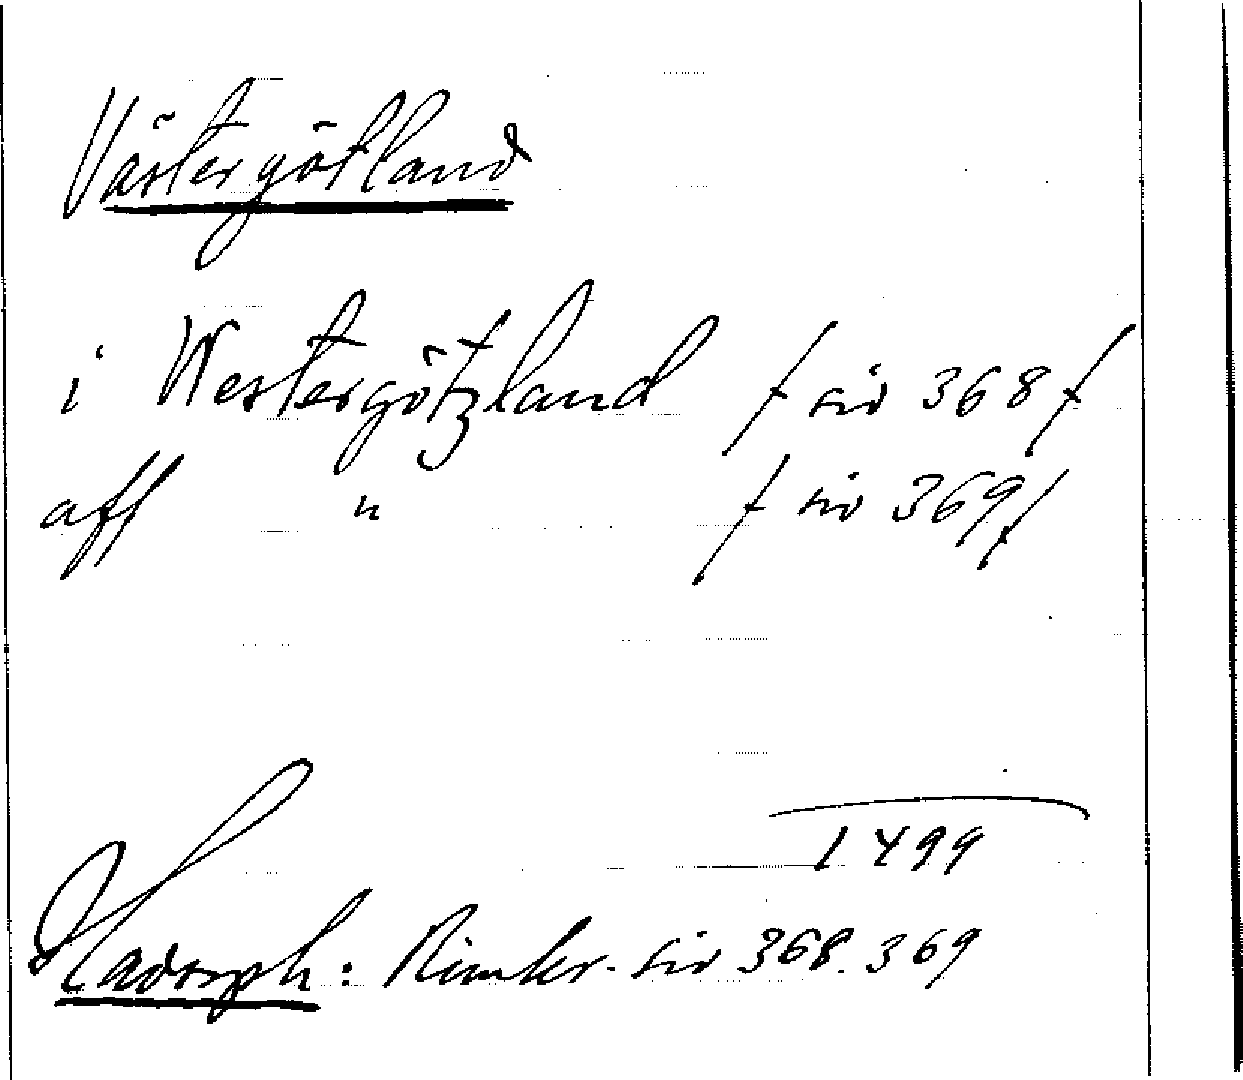 Västergötland
i Westergötzland / sid 368 /
aff " / sid 369 /
1499
Hadorph: Rimkr. sid 368. 369